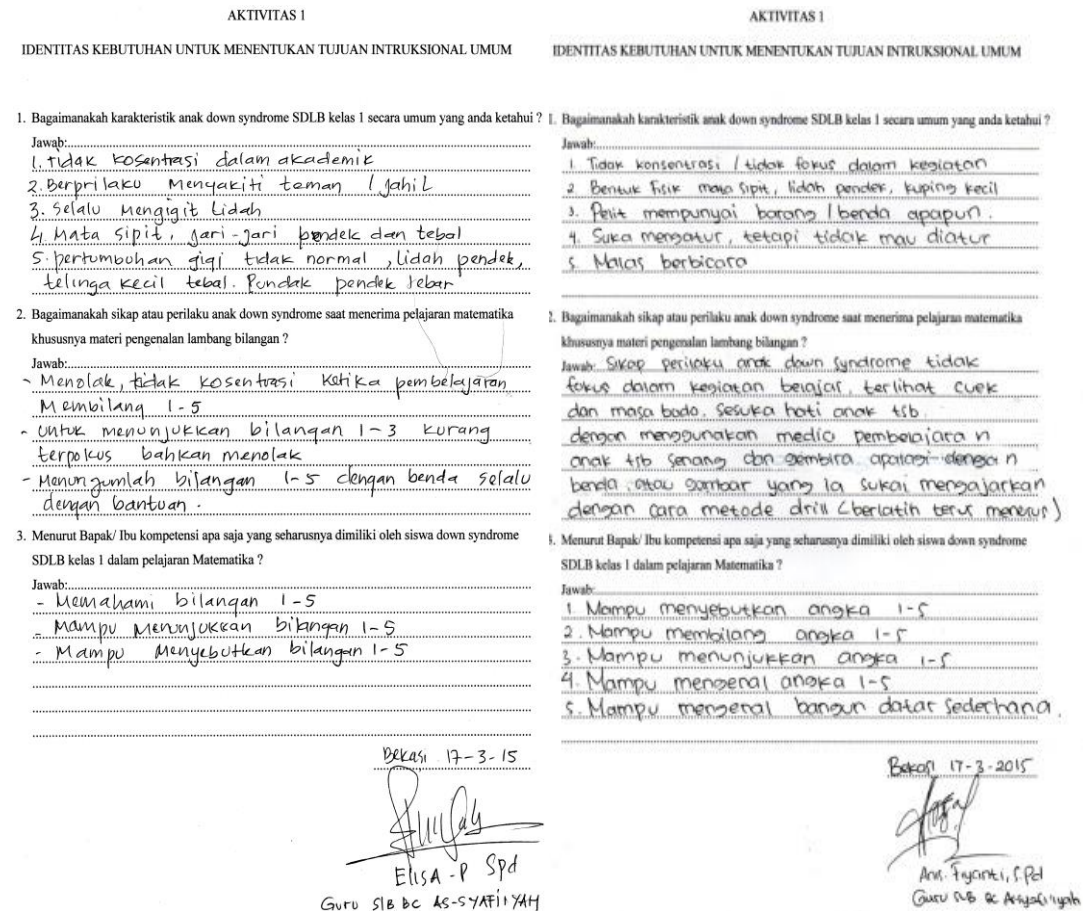 AKTIVITAS 1
IDENTITAS KEBUTUHAN UNTUK MENENTUKAN TUJUAN INTRUKSIONAL UMUM
1. Bagaimanakah karakteristik anak down syndrome SDLB kelas 1 secara umum yang anda ketahui ?
Jawab:
1. tidak kosentrasi dalam akademik
2. Berprilaku Menyakiti teman / Jahil
3. Selalu Mengigit Lidah
4. Mata Sipit, Jari-Jari pendek dan tebal
5. pertumbuhan gigi tidak normal, lidah pendek,
telinga kecil tebal. Pundak pendek lebar
2. Bagaimanakah sikap atau perilaku anak down syndrome saat menerima pelajaran matematika
khususnya materi pengenalan lambang bilangan ?
Jawab:
- Menolak, tidak kosentrasi ketika pembelajaran
Membilang 1-5
- Untuk menunjukkan bilangan 1-3 kurang
terpokus bahkan menolak
- Menunjumlah bilangan 1-5 dengan benda selalu
dengan bantuan.
3. Menurut Bapak/ Ibu kompetensi apa saja yang seharusnya dimiliki oleh siswa down syndrome
SDLB kelas 1 dalam pelajaran Matematika ?
Jawab:
- Memahami bilangan 1-5
- Mampu Menunjukkan bilangan 1-5
- Mampu Menyebutkan bilangan 1-5
Bekasi 17-3-15
ElisA - P Spd
Guru SlB BC AS-SYAFI'IYAH
AKTIVITAS 1
IDENTITAS KEBUTUHAN UNTUK MENENTUKAN TUJUAN INTRUKSIONAL UMUM
1. Bagaimanakah karakteristik anak down syndrome SDLB kelas 1 secara umum yang anda ketahui ?
Jawab:
1. Tidak konsentrasi / tidak fokus dalam kegiatan
2. Bentuk fisik mata sipit, lidah pendek, kuping kecil
3. Pelit mempunyai barang / benda apapun.
4. Suka mengatur, tetapi tidak mau diatur
5. Malas berbicara
2. Bagaimanakah sikap atau perilaku anak down syndrome saat menerima pelajaran matematika
khususnya materi pengenalan lambang bilangan ?
Jawab: Sikap perilaku anak down syndrome tidak
fokus dalam kegiatan belajar, terlihat cuek
dan masa bodo. Sesuka hati anak tsb.
dengan menggunakan media pembelajaran
anak tsb senang dan gembira apalagi dengan
benda atau gambar yang ia sukai mengajarkan
dengan cara metode drill (berlatih terus menerus)
3. Menurut Bapak/ Ibu kompetensi apa saja yang seharusnya dimiliki oleh siswa down syndrome
SDLB kelas 1 dalam pelajaran Matematika ?
Jawab:
1. Mampu menyebutkan angka 1-5
2. Mampu membilang angka 1-5
3. Mampu menunjukkan angka 1-5
4. Mampu mengenal angka 1-5
5. Mampu mengenal bangun datar sederhana.
Bekasi 17-3-2015
Fiyanti, S.Pd
Guru SLB BC